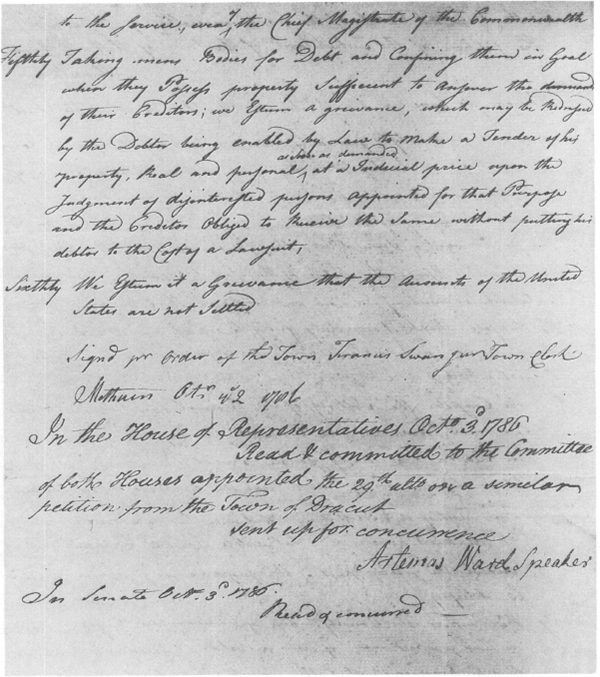 to the Service, even the Chief Magistrate of the Commonwealth
Fifthly Taking mens Bodies for Debt and Confining them in Goal
when they Possess property Sufficient to Answer the demand
of their Creditors; we Esteem a grievance, which may be Redressed
by the Debtor being enabled by Law to Make a Tender of his
as soon as demanded
property, Real and personal, at a Judicial price upon the
Judgment of disinterested persons appointed for that Purpose
and the Creditor Obliged to Receive the Same without putting his
debtor to the Cost of a Lawsuit,
Sixthly We Esteem it a Grievance that the Accounts of the United
States are not Settled
Signd pr Order of the Town Francis Swan Town Clerk
Methuen Octr 2 1786
In the House of Representatives Octo. 3d. 1786
Read & committed to the Committee
of both Houses appointed the 29th ulto on a similar
petition from the Town of Dracut
sent up for concurrence
Artemas Ward Speaker
In Senate Octr. 3d. 1786.
Read & concurred